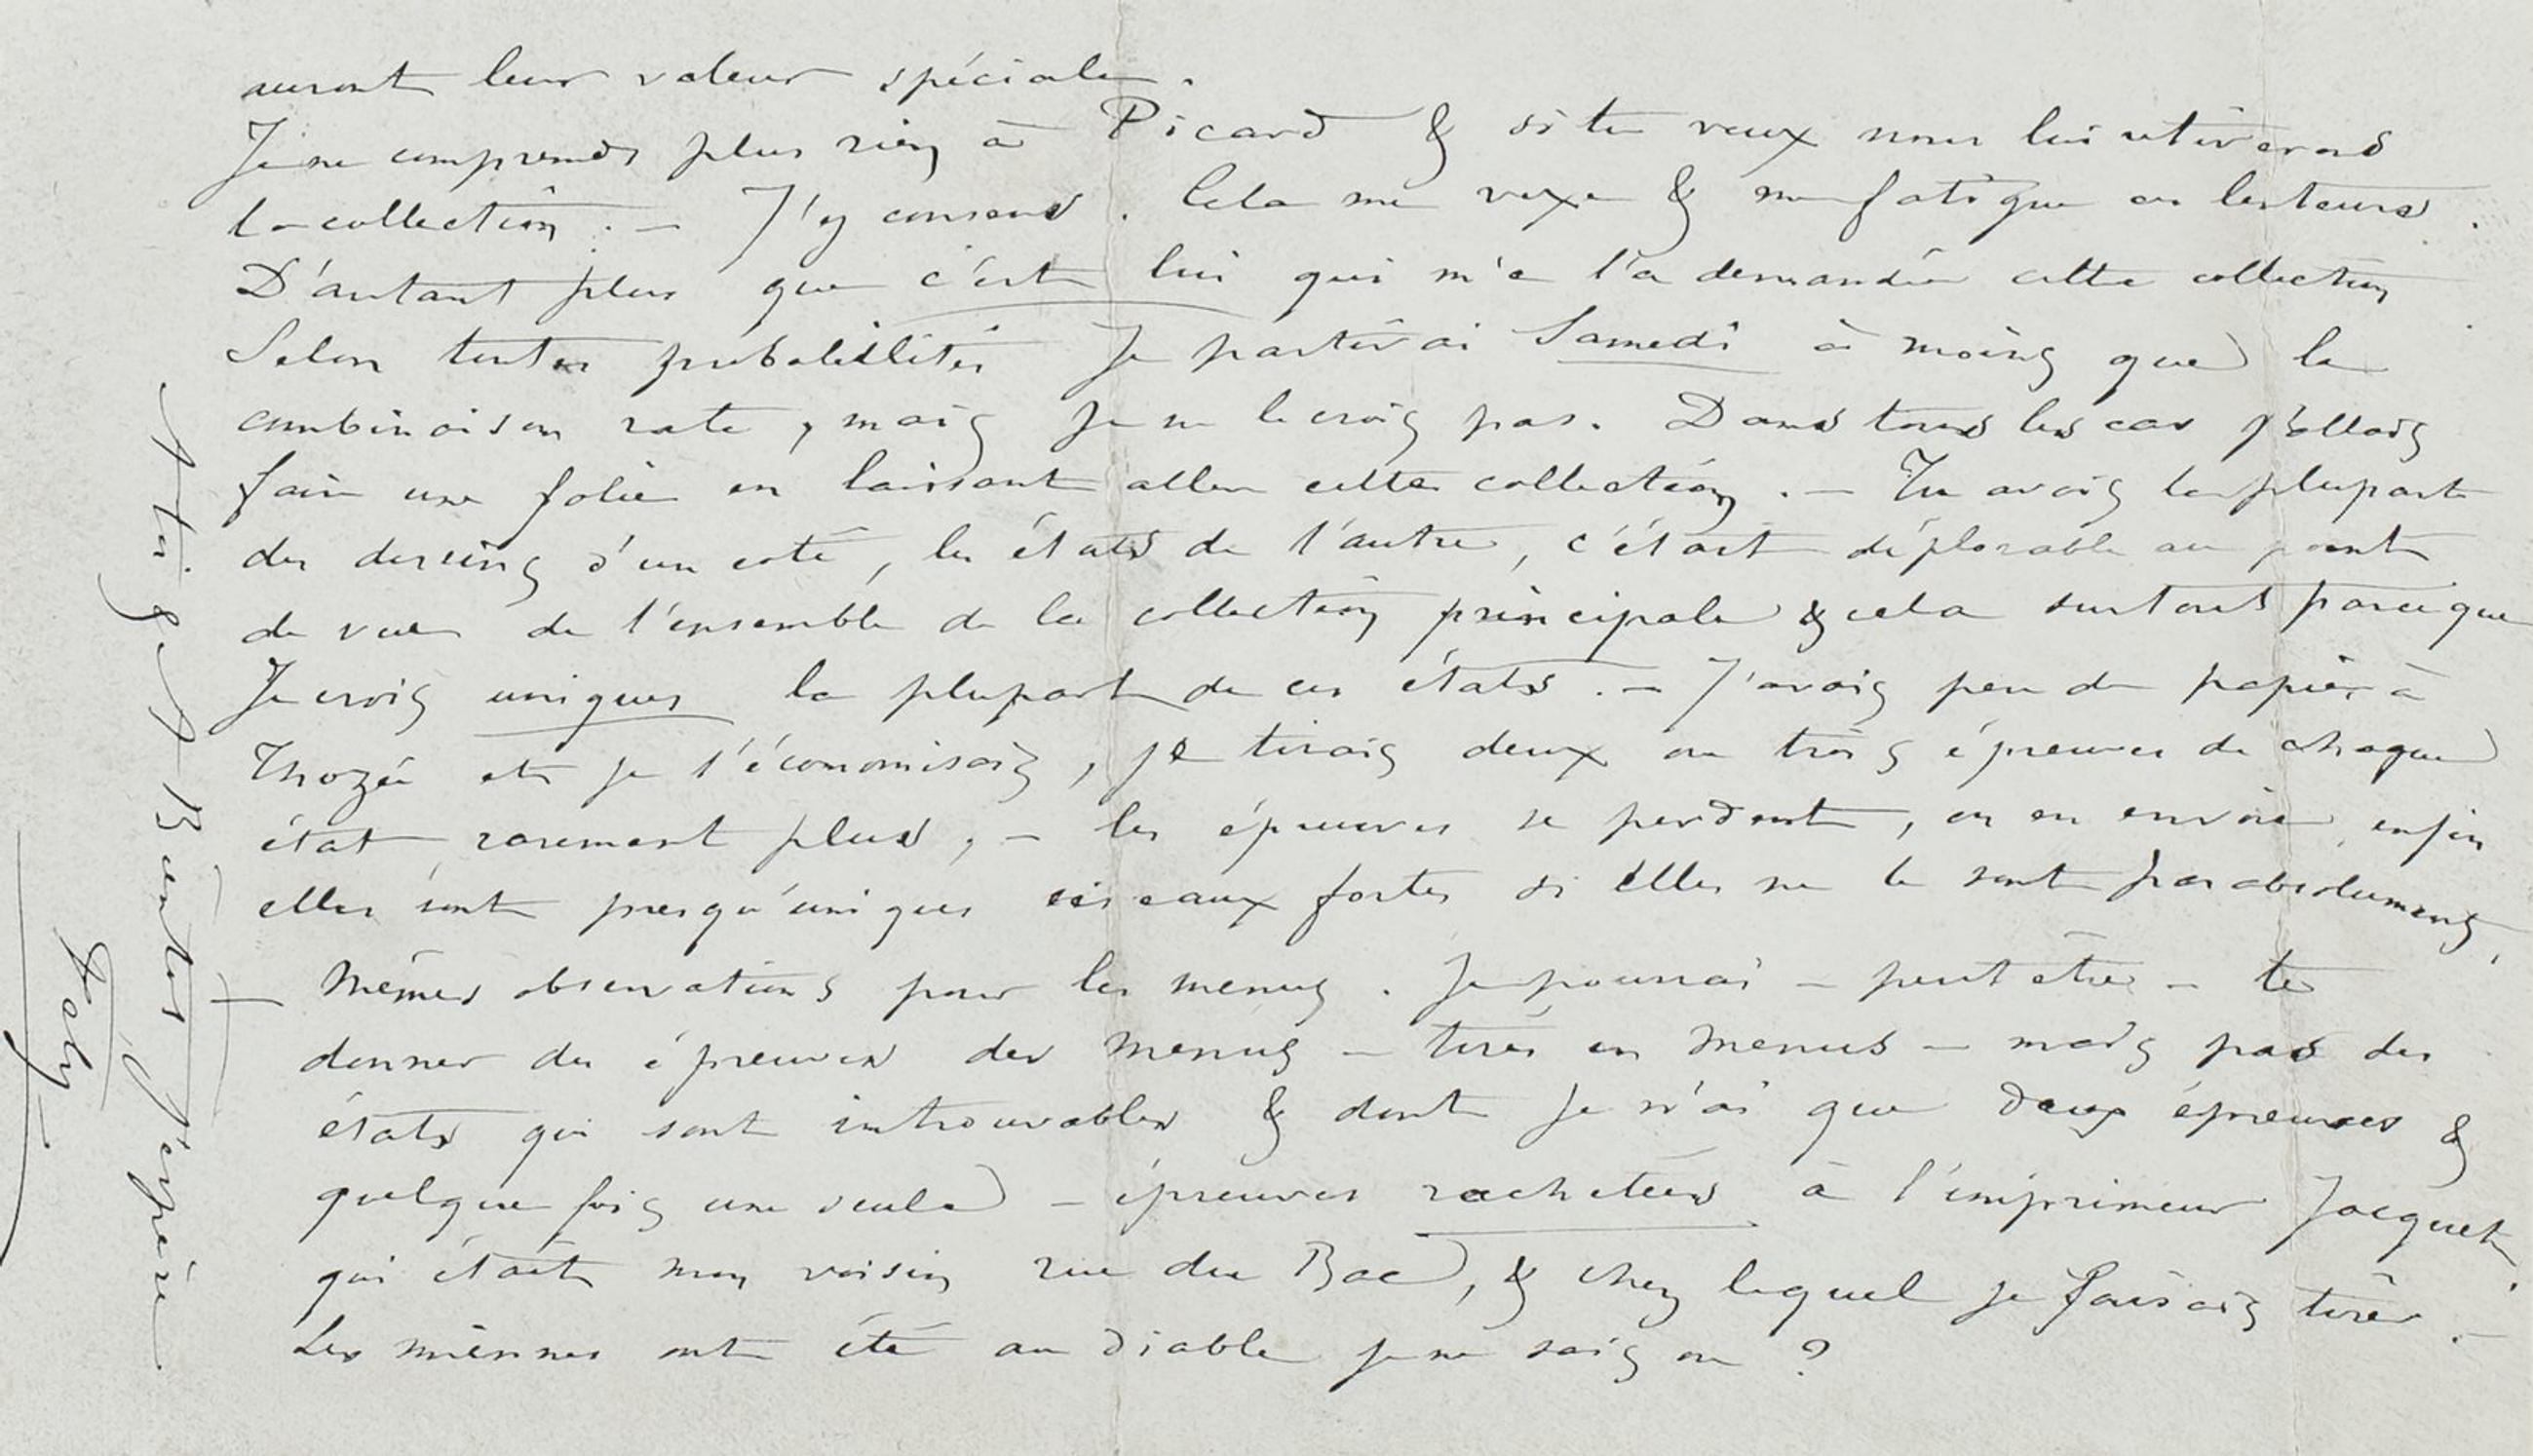 auront leur valeur spéciale.
Je ne comprends plus rien à Picard & si tu veux nous lui retirerons
la collection. — J'y consens. Cela me vexe & me fatigue ces lenteurs.
D'autant plus que c'est lui qui m'a l'a demandée cette collection
Selon toutes probabilités Je partirai Samedi à moins que la
combinaison rate, mais Je ne le crois pas. Dans tous les cas j'allais
faire une folie en laissant aller cette collection. — Tu avais la plupart
des dessins d'un coté, les états de l'autre, c'était déplorable au point
de vue de l'ensemble de la collection principale & cela surtout parceque
Je crois uniques la plupart de ces états. — J'avais peu de papier à
Thozée et je l'économisais, je tirais deux ou trois épreuves de chaque
état rarement plus, — les épreuves se perdent, on en envoie, enfin
elles sont presqu'uniques ces eaux fortes si elles ne le sont pas absolument,
Mêmes observations pour les menus. Je pourrai — peut être — te
donner des épreuves des menus — tirés en menus — mais pas des
états qui sont introuvables & dont Je n'ai que deux épreuves &
quelque fois une seule — épreuves rachetées à l'imprimeur Jacquet,
qui était mon voisin rue du Bac, & chez lequel je faisais tirer. —
Les miennes ont été au diable je ne sais ou ?
A toi & A Bientôt J'espère
Fély